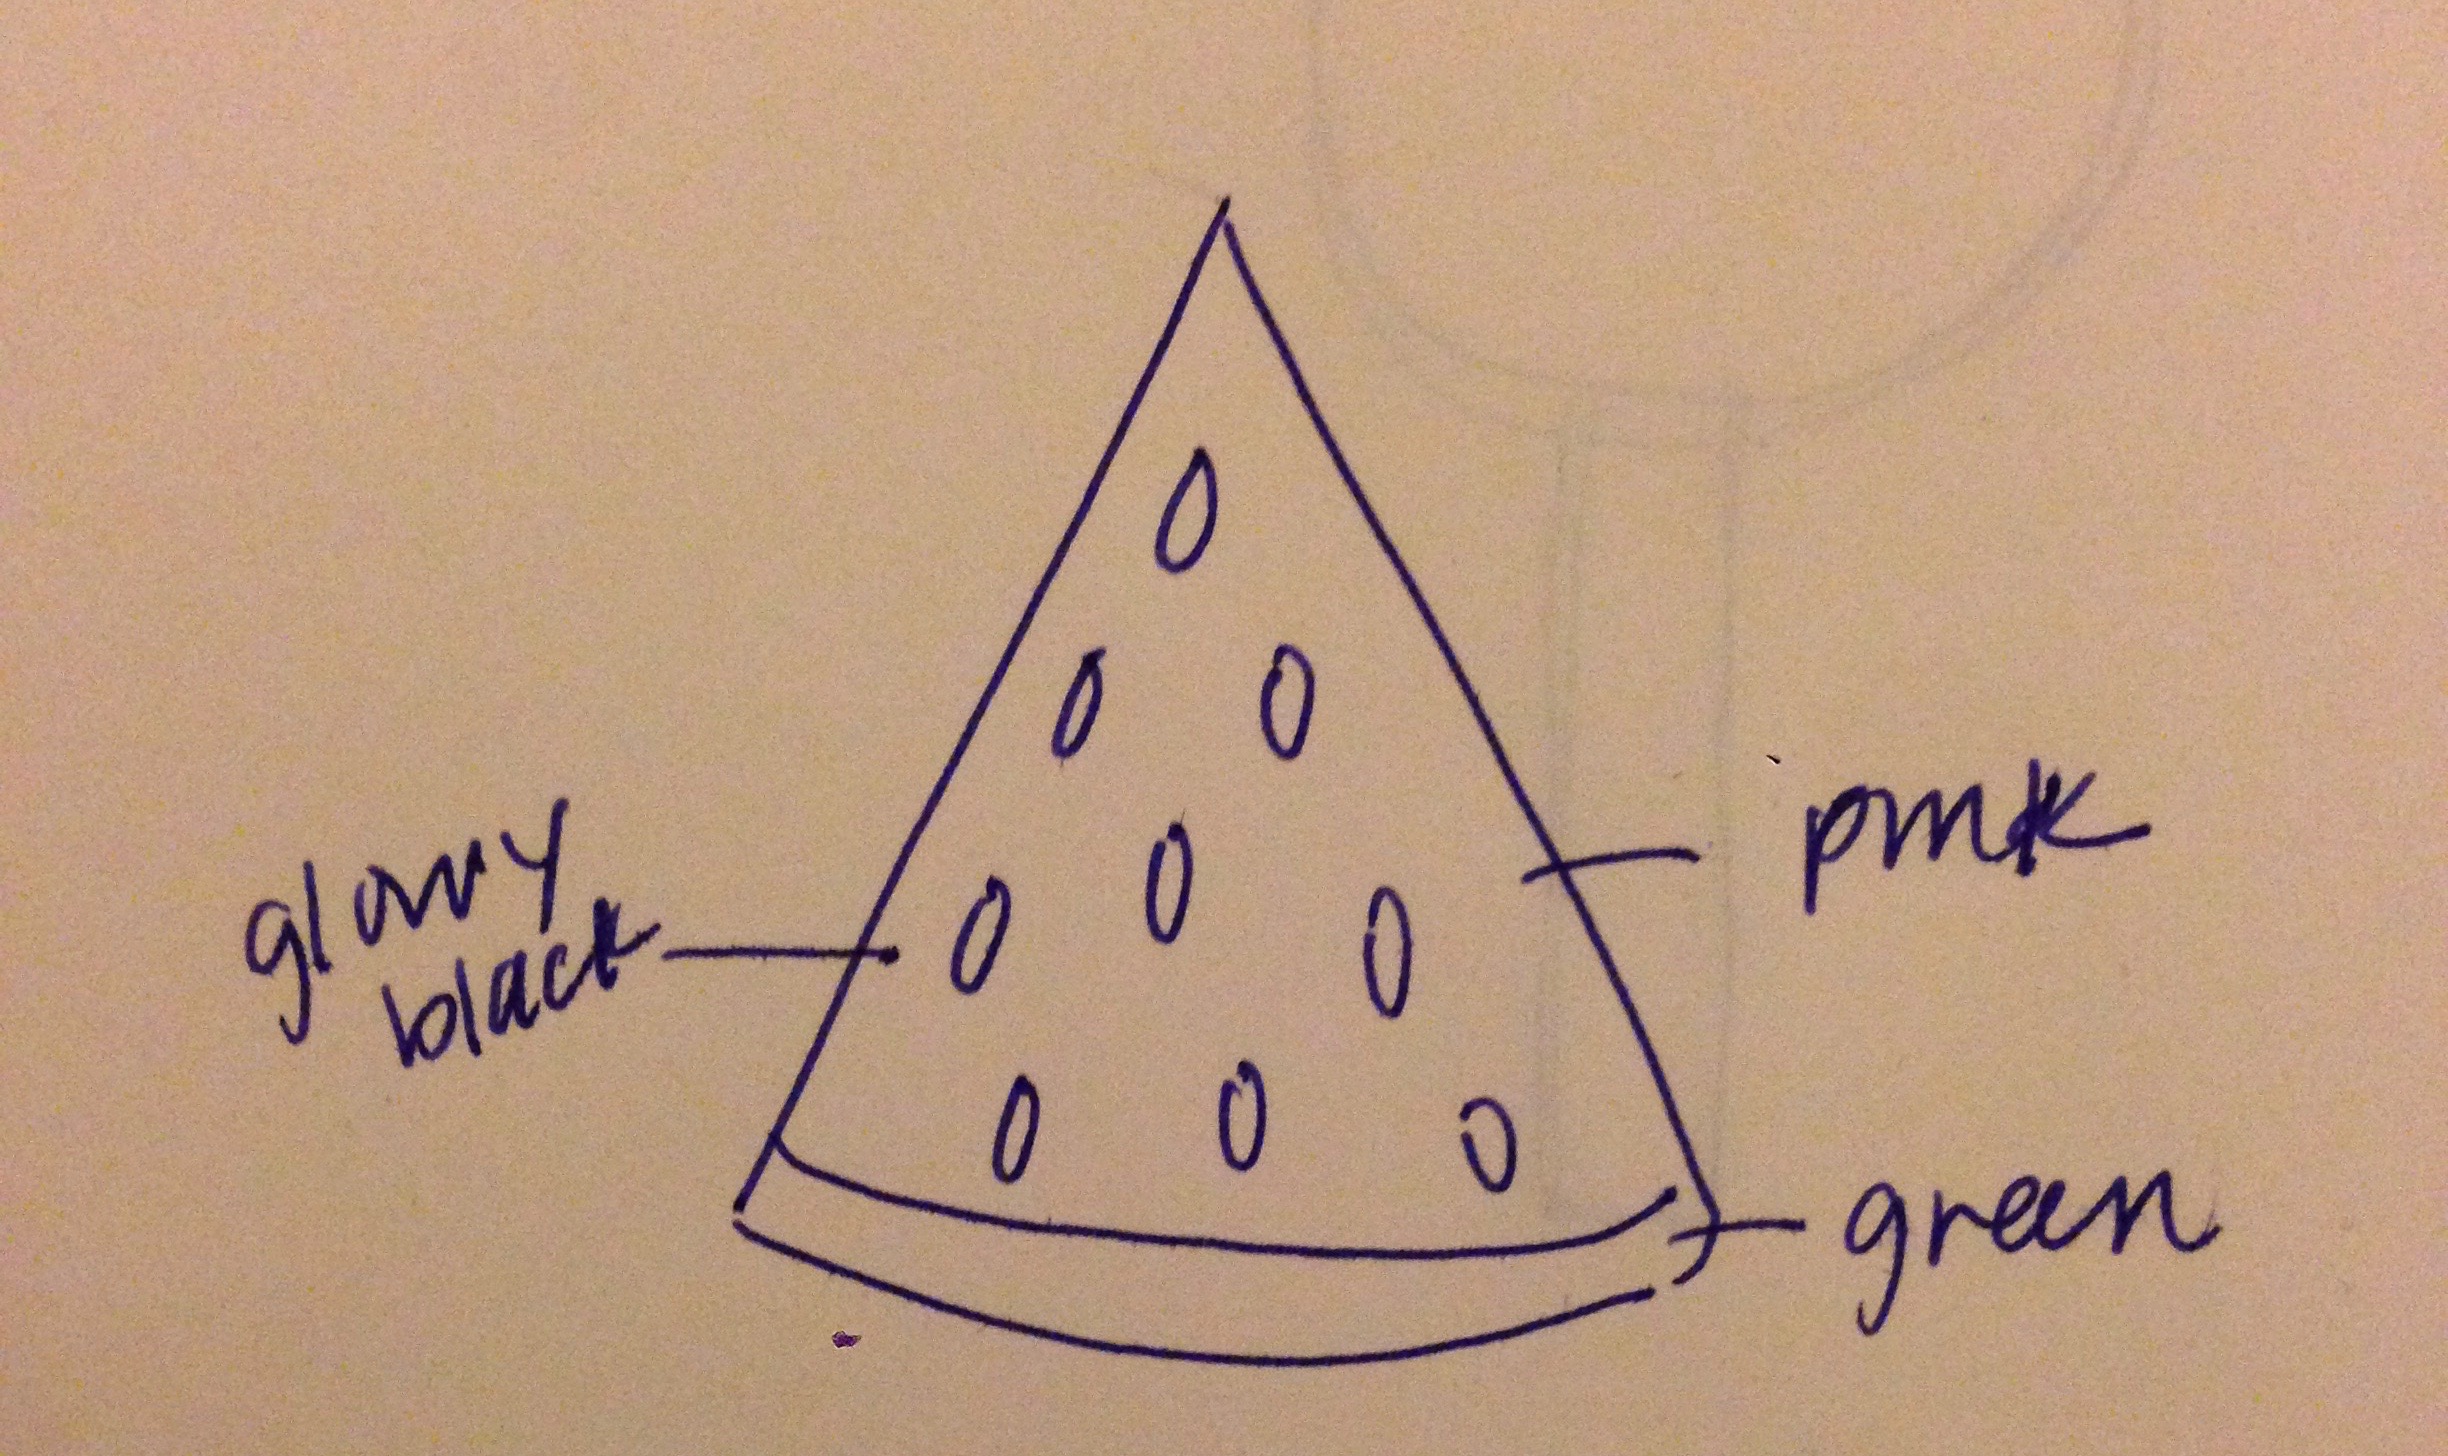 glowy
black
pink
green